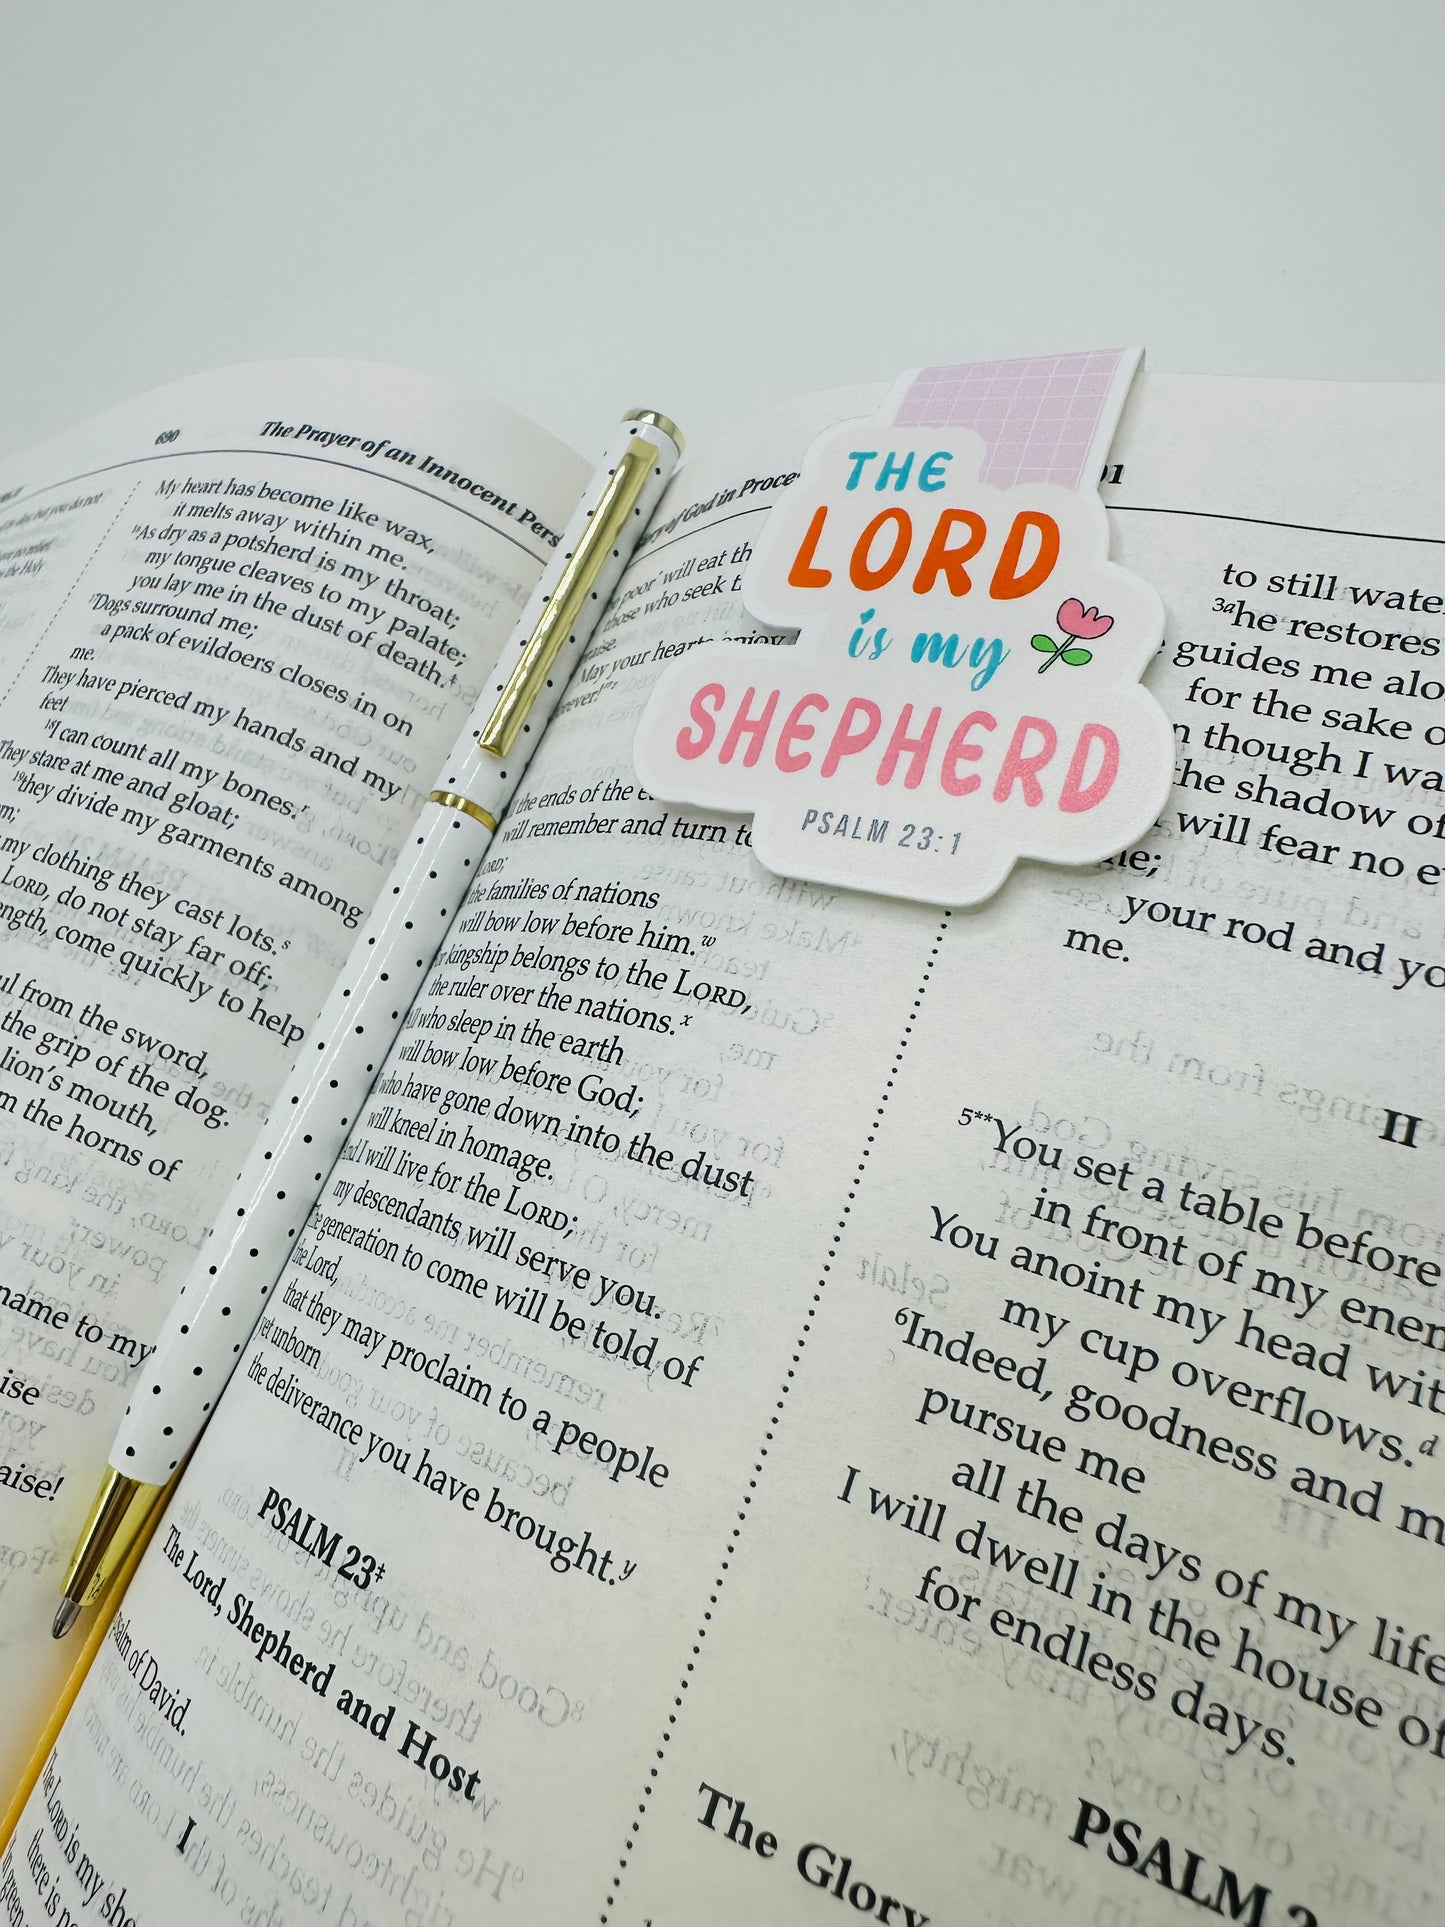 690
The Prayer of an Innocent Pers
My heart has become like wax,
it melts away within me.
As dry as a potsherd is my throat;
my tongue cleaves to my palate;
you lay me in the dust of death.
Dogs surround me;
a pack of evildoers closes in on
me.
They have pierced my hands and my
feet
18I can count all my bones.r
They stare at me and gloat;
19they divide my garments among
my clothing they cast lots.s
LORD, do not stay far off;
come quickly to help
from the sword,
the grip of the dog.
lion's mouth,
the horns of
name to my
of God in Proce
poor will eat th
those who seek t
May your hearts enjoy
the ends of the e
will remember and turn to
LORD;
the families of nations
will bow low before him.w
kingship belongs to the LORD,
the ruler over the nations.x
All who sleep in the earth
will bow low before God;
who have gone down into the dust
will kneel in homage.
And I will live for the LORD;
my descendants will serve you.
The generation to come will be told of
the Lord,
that they may proclaim to a people
yet unborn
the deliverance you have brought.y
PSALM 23‡
The Lord, Shepherd and Host
psalm of David.
I
The LORD is my she
there is no
THE
LORD
is my
SHEPHERD
PSALM 23:1
to still wate
3ahe restores
guides me alo
for the sake o
though I wa
the shadow of
will fear no e
me;
your rod and yo
me.
II
5**You set a table before
in front of my enem
You anoint my head wit
my cup overflows.d
6Indeed, goodness and m
pursue me
all the days of my life
I will dwell in the house of
for endless days.
PSALM 2
The Glory